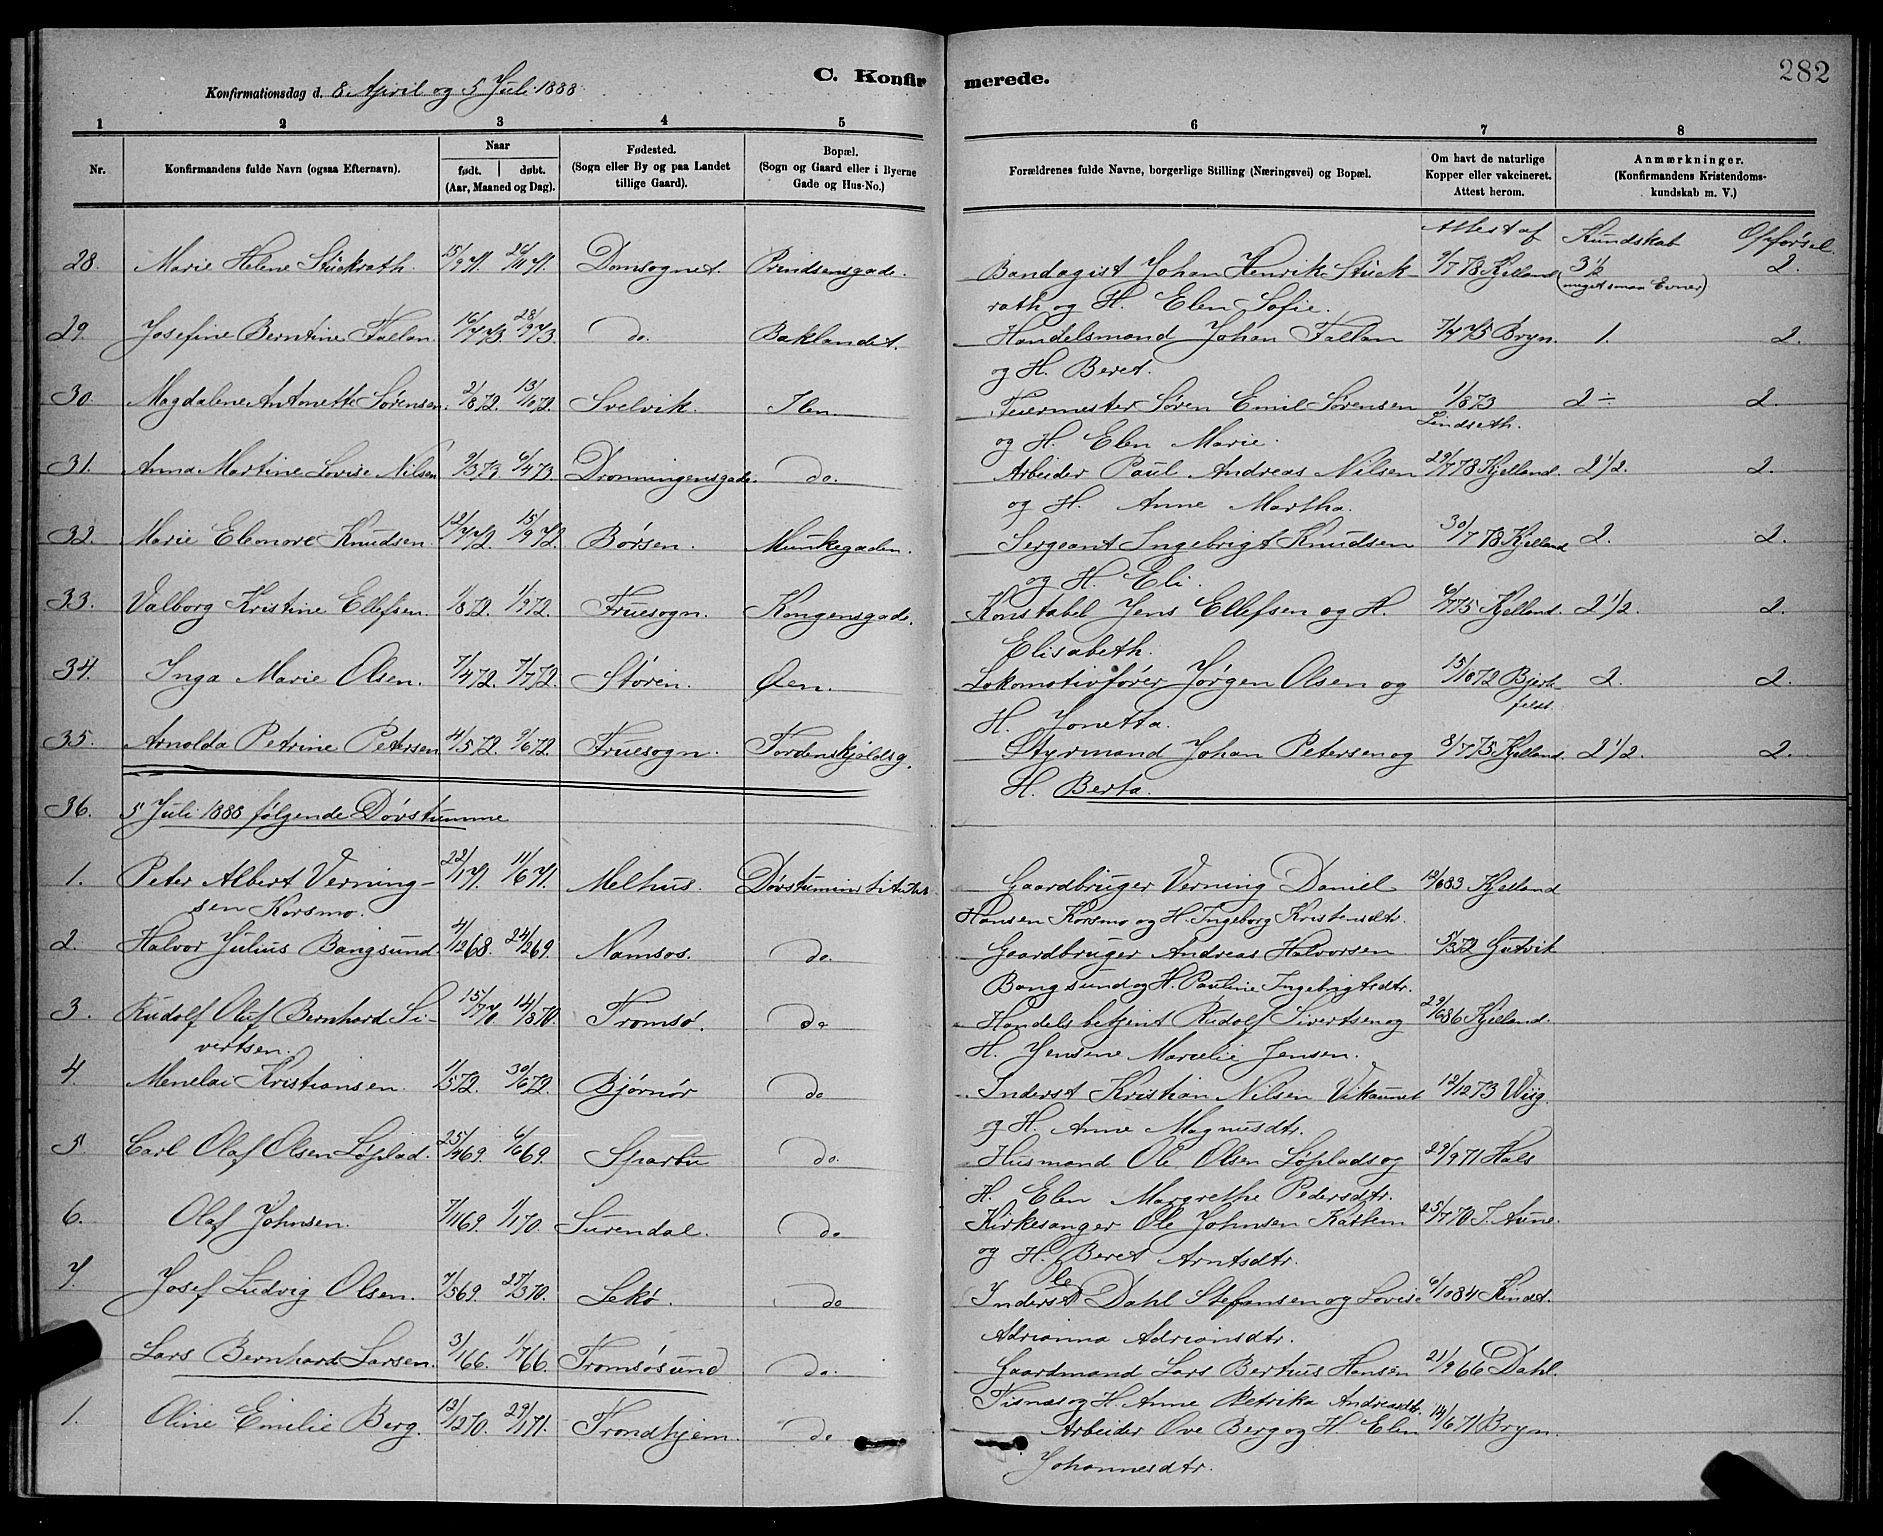 282
C. Konfirmerede.
Konfirmationsdag d. 8 April og 5 Juli 1888
1 2 3 4 5 6 7 8
Nr.
Konfirmandens fulde Navn (ogsaa Efternavn).
Naar
født. døbt.
(Aar, Maaned og Dag).
Fødested.
(Sogn eller By og paa Landet
tillige Gaard).
Bopæl.
(Sogn og Gaard eller i Byerne
Gade og Hus-No.)
Forældrenes fulde Navne, borgerlige Stilling (Næringsvei) og Bopæl.
Om havt de naturlige
Kopper eller vakcineret.
Attest herom.
Anmærkninger.
(Konfirmandens Kristendoms-
kundskab m. V.)
Attest af Kundskab Opførsel
28. Marie Helene Stückrath. 15/9 71. 26/11 71. Domsognet. Prindsensgade. Bandagist Johan Henrik Stück- 9/7 78 Kjelland 3 1/2 2.
rath og H. Elen Sofie. (meget smaa Evner)
29. Josefine Berntine Fallan. 16/7 73. 28/9 73. do. Baklandet. Handelsmand Johan Fallan 7/4 75 Bryn. 1. 2.
og H. Beret.
30 Magdalene Antonette Sørensen. 2/8 72. 13/10 72. Svelvik. Ilen Feiermester Søren Emil Sørensen 1/8 73 2 ÷ 2.
og H. Elen Marie. Lindseth.
31. Anna Martine Lovise Nilsen 9/3 73. 6/4 73. Dronningensgade. do. Arbeider Paul Andreas Nilsen 29/7 78 Kjelland. 2 1/2. 2.
og H. Anne Martha.
32. Marie Eleonore Knudsen. 12/7 72. 15/9 72. Børsen. Munkegaden. Sergeant Ingebrigt Knudsen 30/7 78 Kjelland 2. 2.
og H. Eli.
33. Valborg Kristine Ellefsen. 1/8 72. 1/9 72. Fruesogn. Kongensgade. Konstabel Jens Ellefsen og H. 6/7 75 Kjelland. 2 1/2. 2.
Elisabeth.
34. Inga Marie Olsen. 7/4 72. 7/7 72. Støren. Øen. Lokomotivfører Jørgen Olsen og 15/10 72 Bjerk- 2. 2.
H. Jonetta. feldt.
35. Arnolda Petrine Petersen 4/5 72. 9/6 72. Fruesogn. Tordenskjoldsg. Styrmand Johan Petersen og 8/7 75 Kjelland. 2 1/2. 2.
H. Berta.
36. 5 Juli 1888 følgende Døvstumme
1. Peter Albert Verning- 22/1 71. 11/6 71. Melhus. Døvstuminstitutet Gaardbruger Verning Daniel 12/6 83 Kjelland
sen Korsmo. Hansen Korsmo og H. Ingeborg Kristensdtr.
2. Halvor Julius Bangsund. 4/12 68. 24/2 69. Namsos. do. Gaardbruger Andreas Halvorsen 5/3 72 Gutvik
Bangsund og H. Pauline Ingebrigtsdtr.
3. Rudolf Oluf Bernhard Si- 15/7 70. 14/8 70. Tromsø. do Handelsbetjent Rudolf Sivertsen og 29/6 86 Kjelland.
vertsen. H. Jensine Marselie Jensen.
4. Menelai Kristiansen. 1/5 72. 30/6 72. Bjørnør do Inderst Kristian Nilsen Vikaunet 12/12 73 Wiig.
og H. Anne Magnusdtr.
5. Carl Olaf Olsen Løplad. 25/4 69. 6/6 69. Sparbu do. Husmand Ole Olsen Løplads og 29/9 71 Hals
H. Elen Margrethe Pedersdtr.
6. Olaf Johnsen. 7/11 69. 1/1 70. Surendal. do Kirkesanger Ole Johnsen Kattem 25/7 70 J. Aune.
og H. Beret Arntsdtr.
7. Josef Ludvig Olsen. 7/5 69. 27/3 70. Lekø. do Inderst Ole Dahl Stefansen og Lovise 6/10 84 Kindt.
Adrianna Adriansdtr.
Lars Bernhard Larsen. 3/1 66. 1/7 66. Tromsøsund do. Gaardmand Lars Berthus Hansen 21/9 66 Dahl.
Tisnæs og H. Anne Petrika Andreasdtr.
1. Oline Emilie Berg. 12/12 70. 29/1 71. Trondhjem. do Arbeider Ove Berg og H. Elen 14/6 71 Bryn.
Johannesdtr.